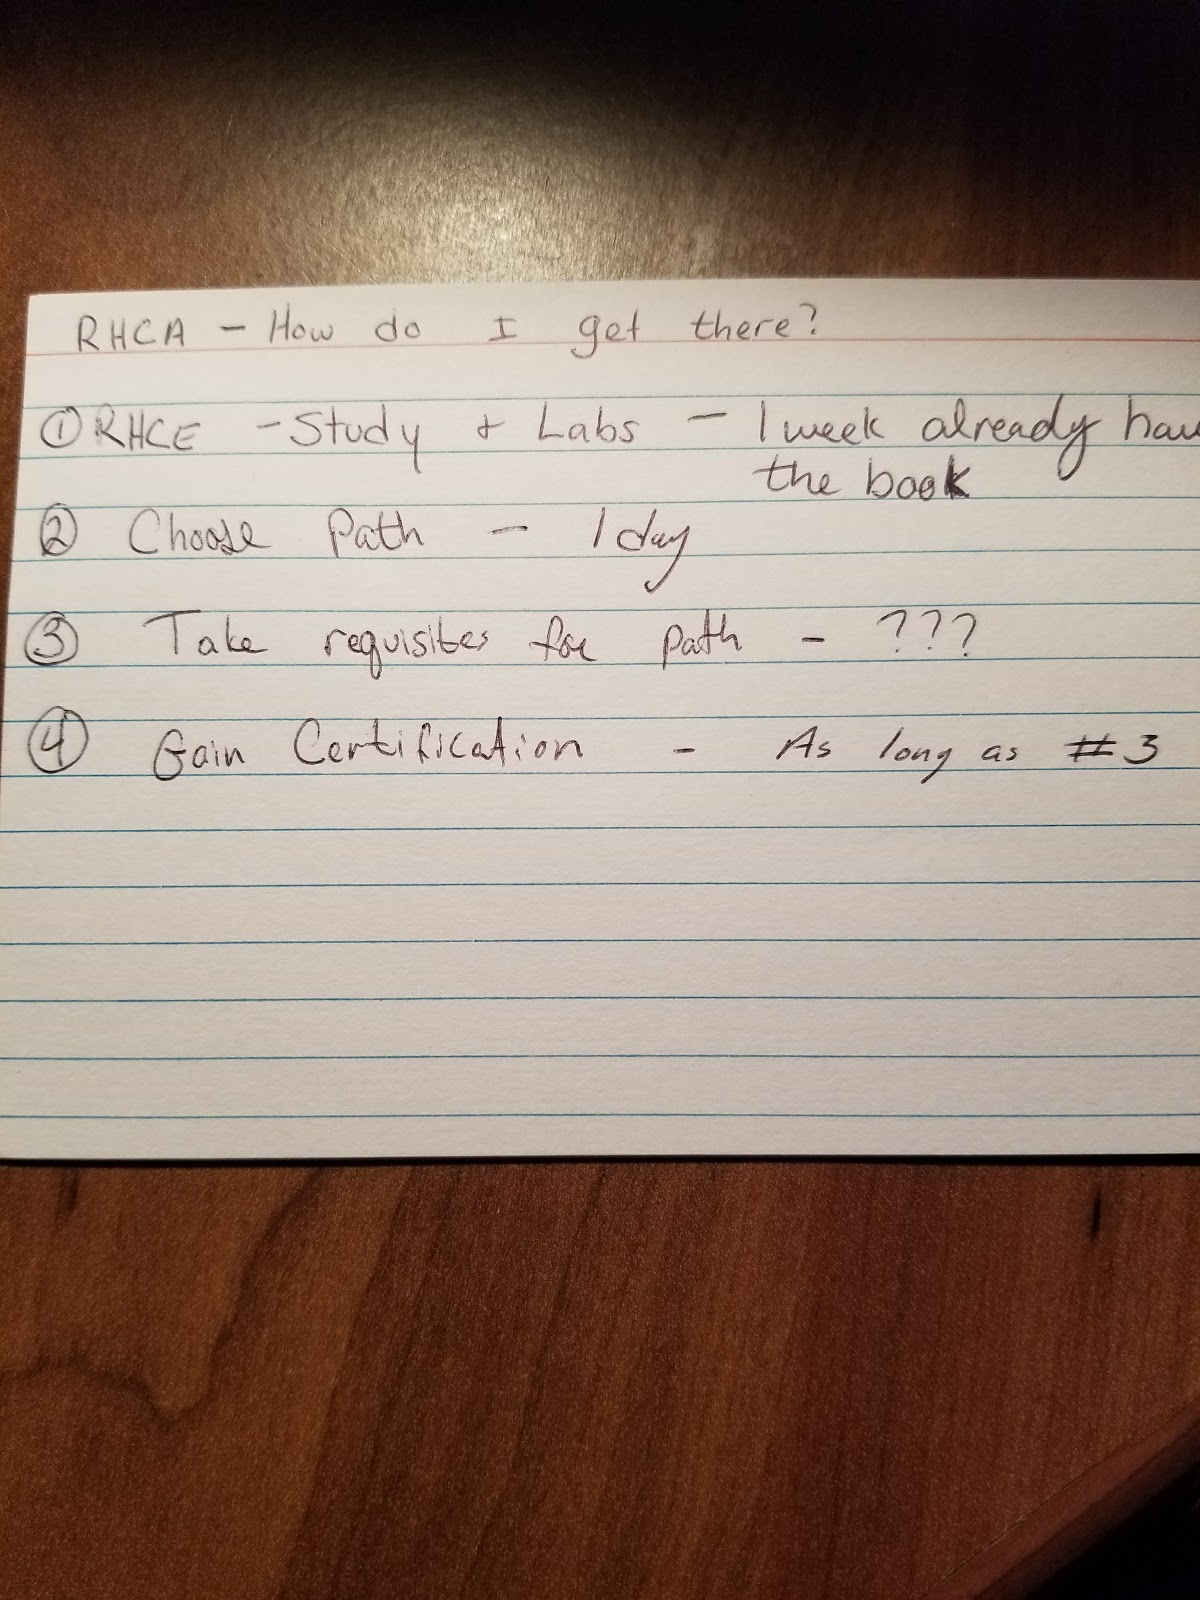 RHCA - How do I get there?
① RHCE - Study & Labs - 1 week already hav
the book
② Choose Path - 1 day
③ Take requisites for path - ???
④ Gain Certification - As long as #3